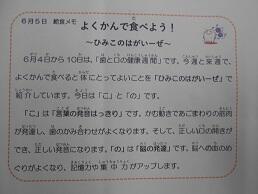 6月5日　給食メモ
よくかんで食べよう！
～ひみこのはがいーぜ～
6月4日から10日は、「歯と口の健康週間」です。今週と来週で、
よくかんで食べると体にとってよいことを「ひみこのはがいーぜ」で
紹介しています。今日は「こ」と「の」です。
「こ」は「言葉の発音はっきり」です。かむ動きであごまわりの筋肉
が発達し、歯のかみ合わせがよくなります。そして、正しい口の開きが
でき、正しい発音になります。「の」は「脳の発達」です。脳への血のめ
ぐりがよくなり、記憶力や集中力がアップします。